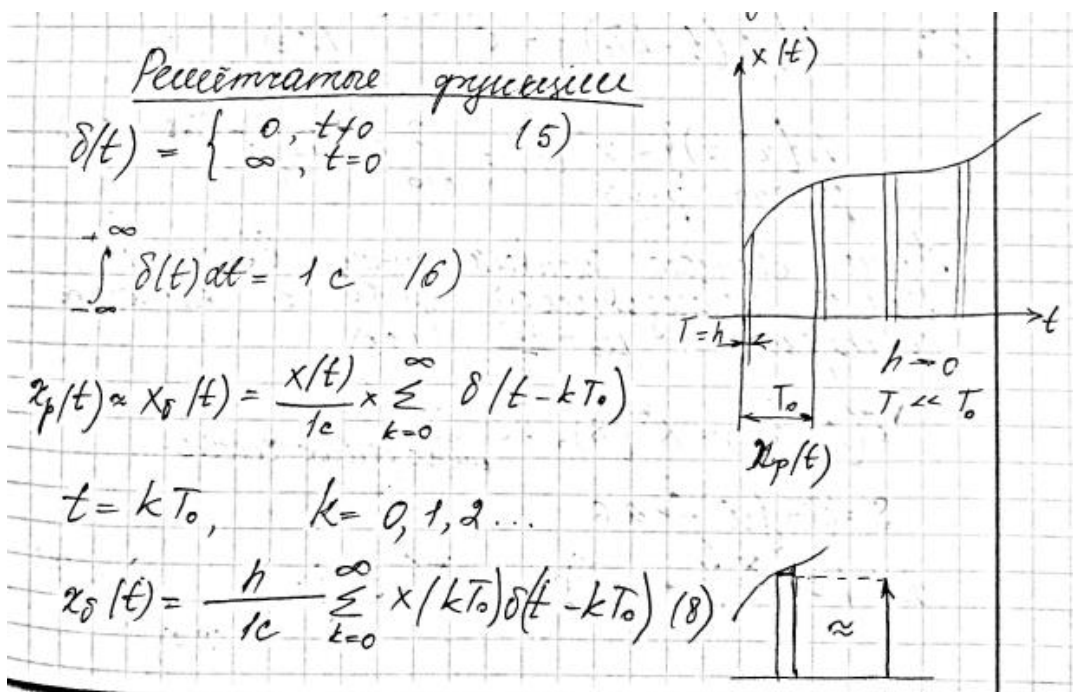 Решётчатые функции
δ(t) = { 0, t≠0
∞, t=0 (5)
+∞
∫ δ(t)dt = 1 с (6)
-∞
x_p(t) ≈ x_δ(t) = x(t)/1с × ∑_{k=0}^{∞} δ(t-kT₀)
t = kT₀, k = 0, 1, 2 ...
x_δ(t) = h/1с ∑_{k=0}^{∞} x(kT₀)δ(t-kT₀) (8)
x(t)
t
T=h
h→0
T₀
T << T₀
x_p(t)
≈